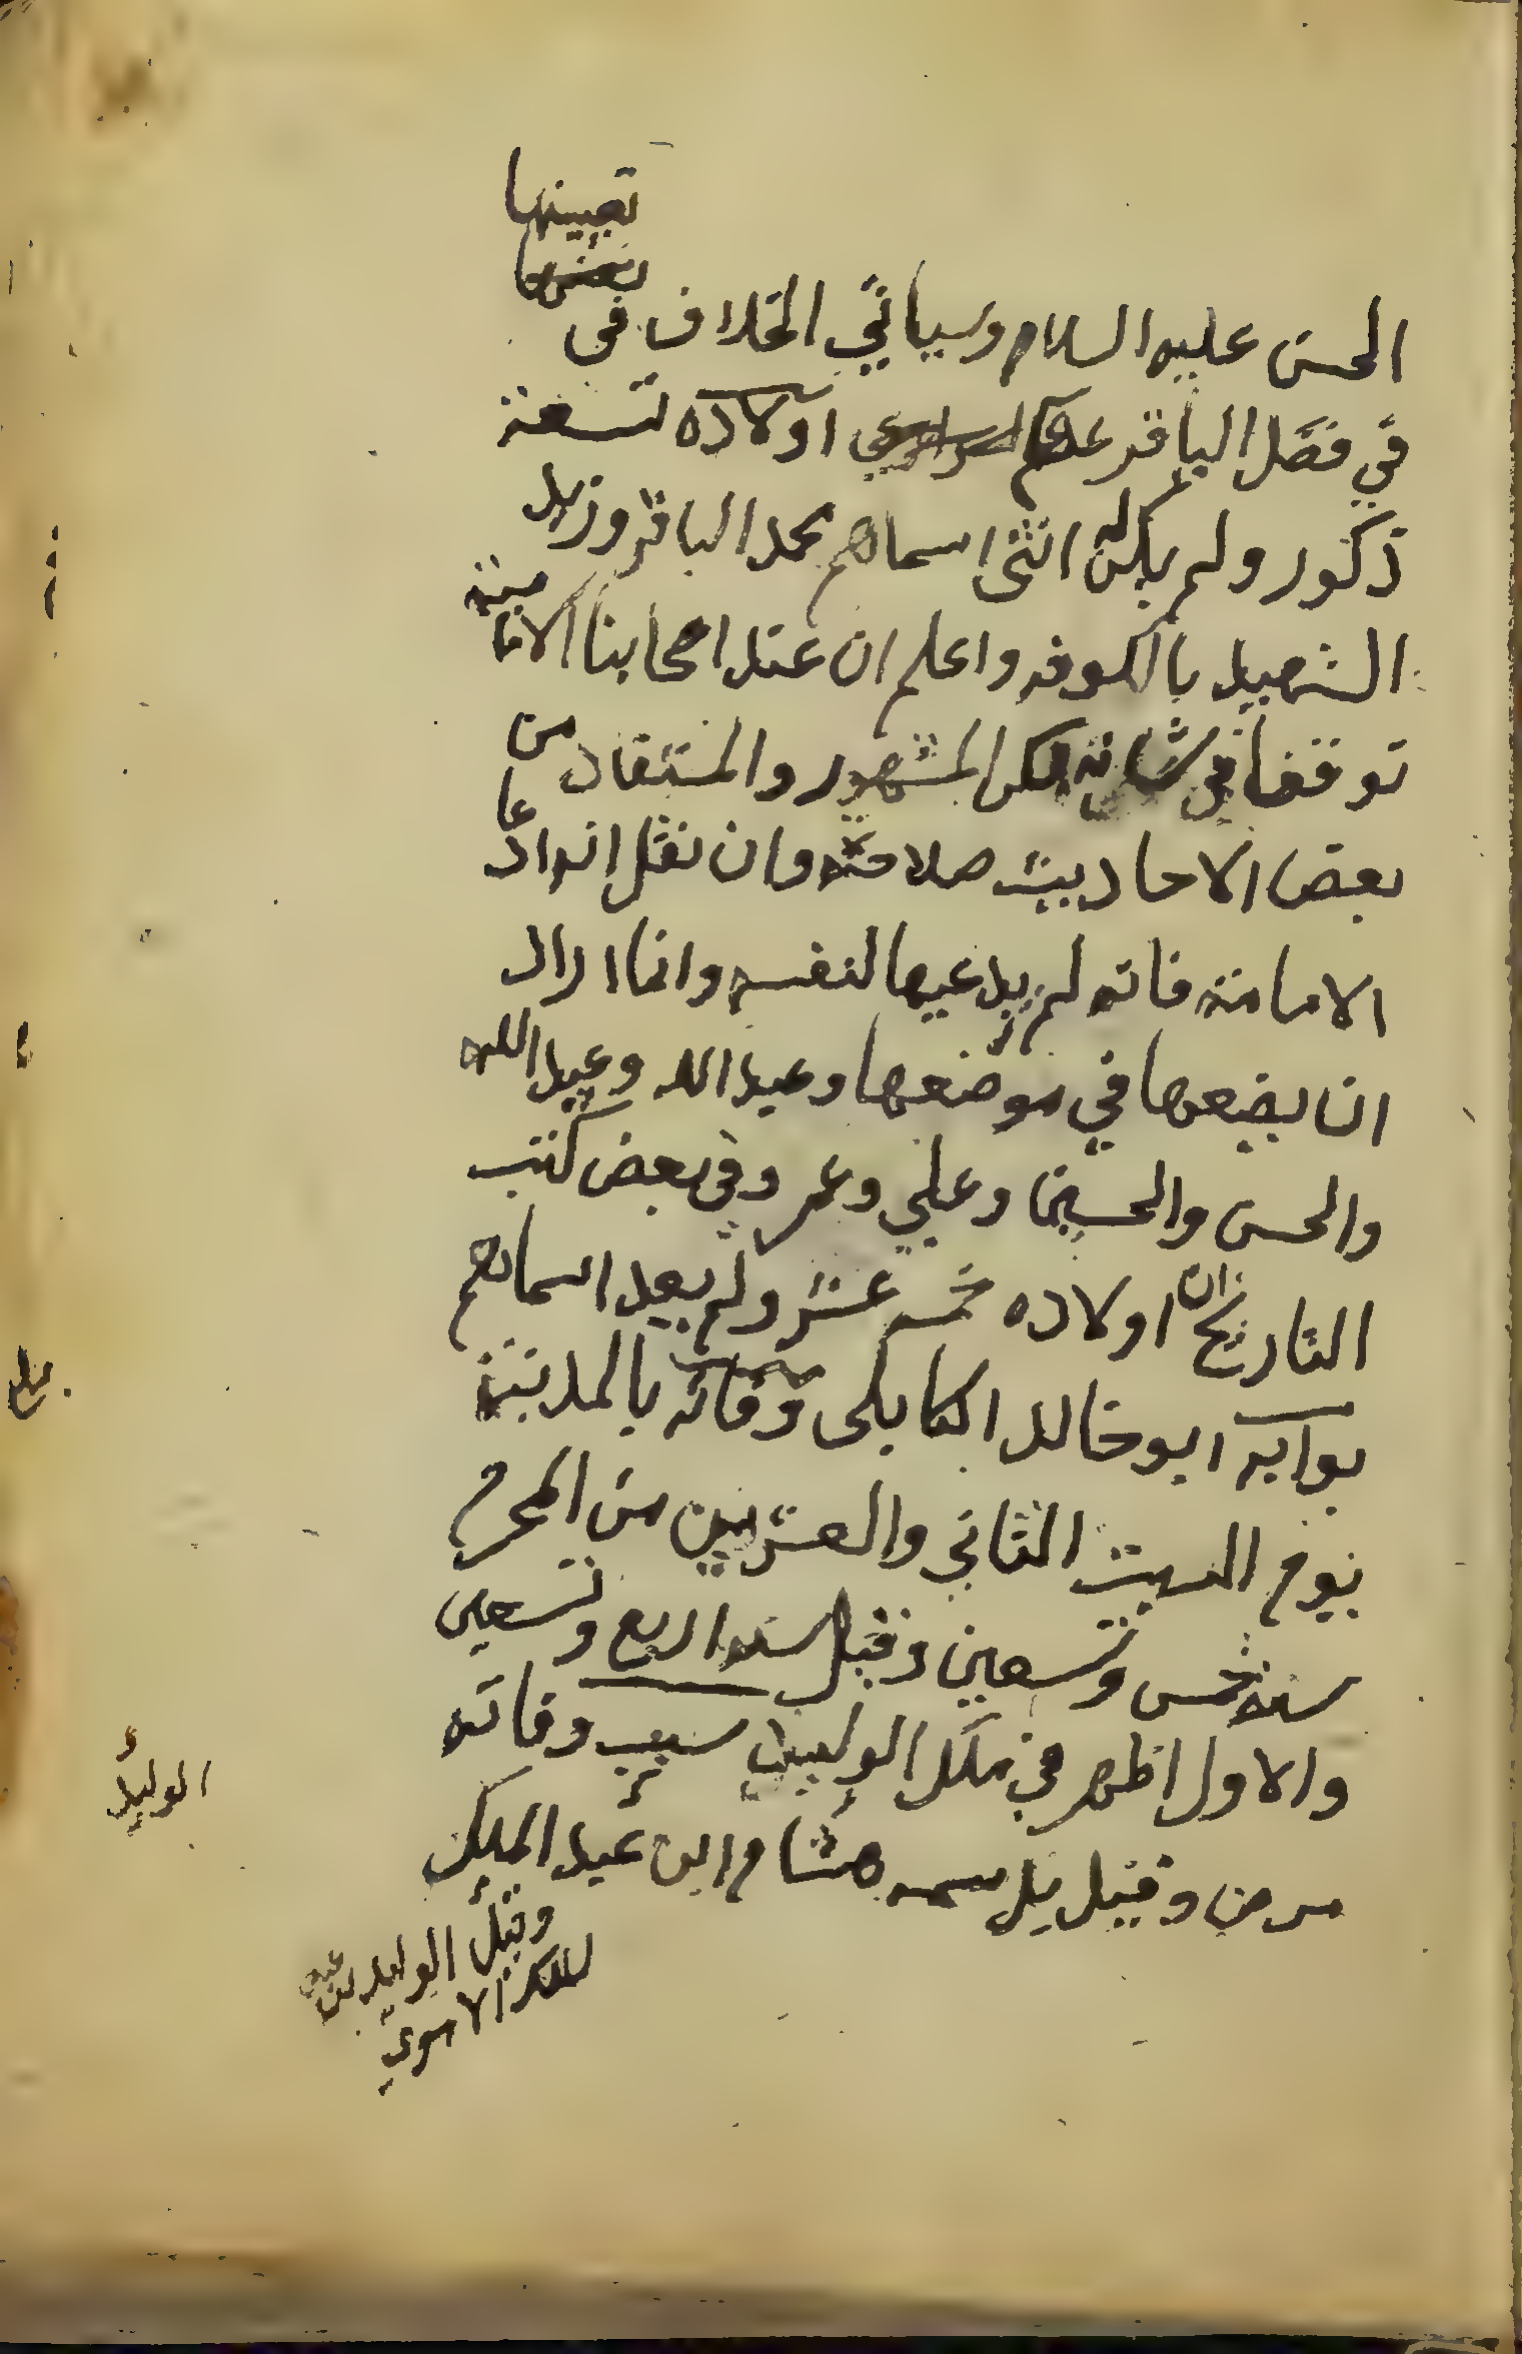 تعيينها
الحسن عليه السلام وسياتي الخلاف في
في فصل الباقر اولاده تسعة
ذكور ولم يكن له انثى اسماهم محمد الباقر وزيد
الشهيد بالكوفه واعلم ان عند اصحابنا الامامية
توقفا في شانه لكن المشهور والمستفاد من
بعض الاحاديث صلاحته وان نقل انه ادعا
الامامة فانه لم يدعيها لنفسه وانما اراد
ان يضعها في موضعها وعبد الله وعبيد الله
والحسن والحسين وعلي وعمر وفي بعض كتب
التاريخ ان اولاده خمسه عشر ولم يعد اسمائهم
بوابه ابو خالد الكابلى وفاته بالمدينة
يوم السبت الثاني والعشريين من المحرم
سنة خمس وتسعين وقيل سنه اربع وتسعين
والاول اظهر في ملك الوليد سبب وفاته
مرض وقيل بل سمه هشام ابن عبد الملك
وقيل الوليد بن عبد
الملك الاموي
الوليد